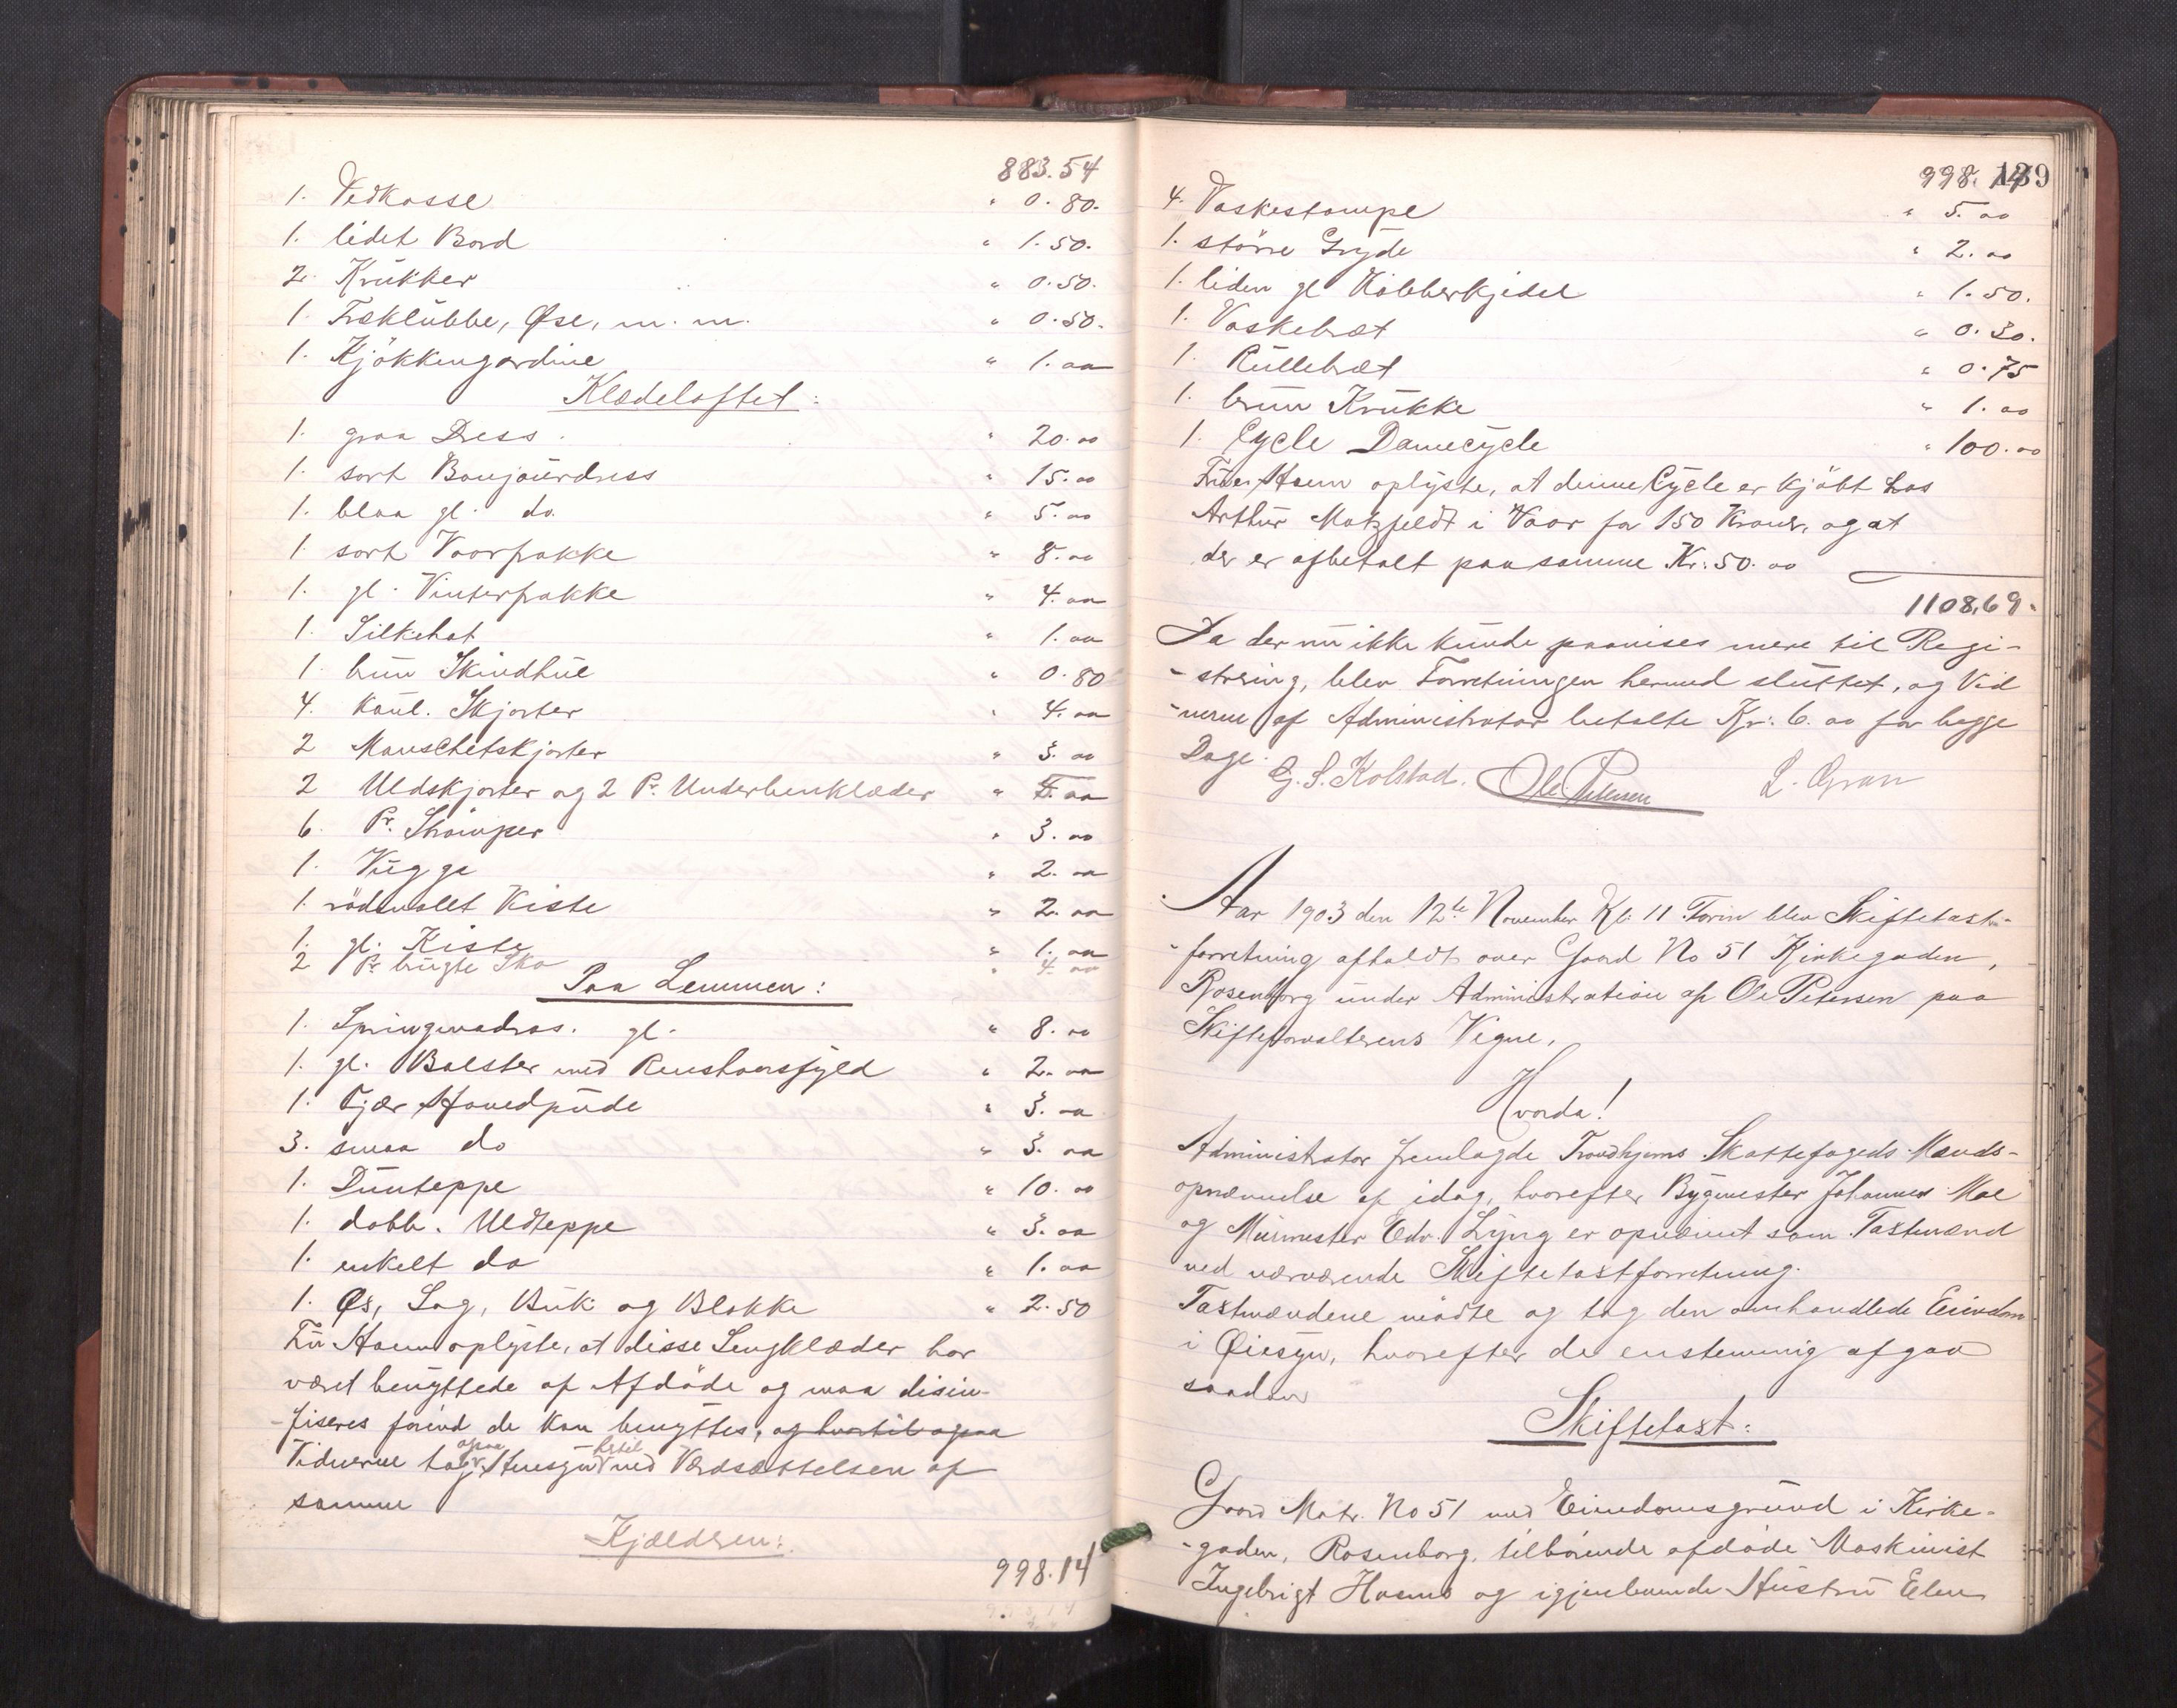 883.54
1. Vedkasse " 0.80.
1. lidet Bord " 1.50.
2. Krukker " 0.50.
1. Træklubbe, Øse, m. m. " 0.50.
1. Kjökkengardine " 1.00
Klædeloftet:
1. graa Dress. " 20.00
1. sort Bonjourdress " 15.00
1. blaa gl. do. " 5.00
1. sort Vaarfrakke " 8.00
1. gl. Vinterfrakke " 4.00
1. Silkehat " 1.00
1. brun Skindhue " 0.80
4. kaul. Skjorter " 4.00
2 Manschetskjorter " 3.00
2 Uldskjorter og 2 Pr. Underbenklæder " 5.00
6. Pr. Strömper " 3.00
1. Vugge " 2.00
1. rödmalet Kiste " 2.00
1. gl. Kiste " 1.00
2 Pr. brugte Sko " 4.00
Paa Lemmen:
1. Springmadras. gl. " 8.00
1. gl. Bolster med Renshaarsfyld " 2.00
1. Fjær Hovedpude " 3.00
3. smaa do " 3.00
1. Dunteppe " 10.00
1. dobb. Uldteppe " 3.00
1. enkelt do " 1.00
1. Øs, Sag, Buk og Blokke " 2.50
Fru Haem oplyste, at disse Sengklæder har
været benyttede af Afdöde og maa disin-
-fiseres forind de kan benyttes, og hvortil ogsaa
Vidnerne tog ogsaa Hensyn hertil ved Værdsættelsen af
samme
Kjælderen:
998.14
998.14 139
4. Vaskestampe " 5.00
1. större Gryde " 2.00
1. liden gl Kobberkjedel " 1.50.
1. Vaskebræt " 0.30.
1. Rullebræt " 0.75
1. brun Krukke " 1.00
1. Cycle Damecycle " 100.00
Fruen Haem oplyste, at denne Cycle er kjöbt hos
Arthur Motzfeldt i Vaar for 150 Kroner, og at
der er afbetalt paa samme Kr: 50.00
1108,69.
Da der nu ikke kunde paavises mere til Regi-
-strering, blev Forretningen hermed sluttet, og Vid
-nerne af Administrator betalte Kr: 6.00 for begge
Dage.
G. S. Kolstad. Ole Petersen L. Gran
Aar 1903 den 12te November Kl. 11 Form blev Skiftetaxt-
-forretning afholdt over Gaard No 51 Kirkegaden,
Rosenborg under Administration af Ole Petersen paa
Skifteforvalterens Vegne.
Hvorda!
Administrator fremlagde Trondhjems Skattefogeds Mands-
opnævnelse af idag, hvorefter Bygmester Johannes Moe
og Murmester Edv. Lyng er opnævnt som Taxtmænd
ved nærværende Skiftetaxtforretning.
Taxtmændene mödte og tog den omhandlede Eiendom
i Öiesyn, hvorefter de enstemmig afgav
saadan
Skiftetaxt:
Gaard Matr. No 51 med Eiendomsgrund i Kirke-
-gaden, Rosenborg, tilhörende afdöde Maskinist
Ingebrigt Haems og igjenlevende Hustru Elen